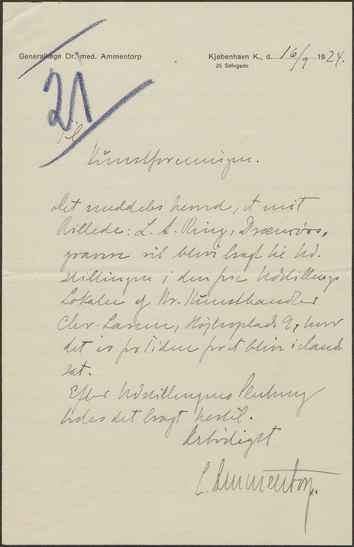 Generallæge Dr. med. Ammentorp
Kjøbenhavn K., d. 16/9 1924.
25 Sølvgade
21
Til
Kunstforeningen.
Det meddeles herved, at mit
Billede: L. A. Ring, Drænrørs
graverne vil blive bragt til Ud
stillingen i den frie Udstillings
Lokaler af Hr. Kunsthandler
Chr. Larsen, Højbroplads 9, hvor
det
blive
Efter Udstillingens Slutning
bedes det bragt hertil.
Ærbødigst
L. Ammentorp.